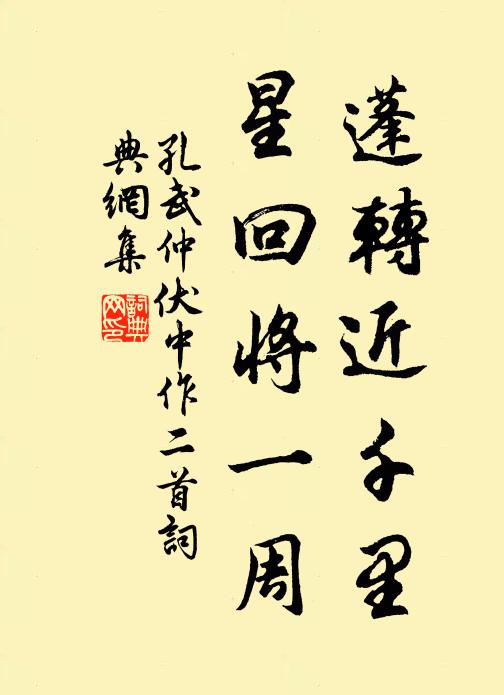 蓬轉近千里
星回將一周
孔武仲伏中作二首詞
典網集
詞典網印